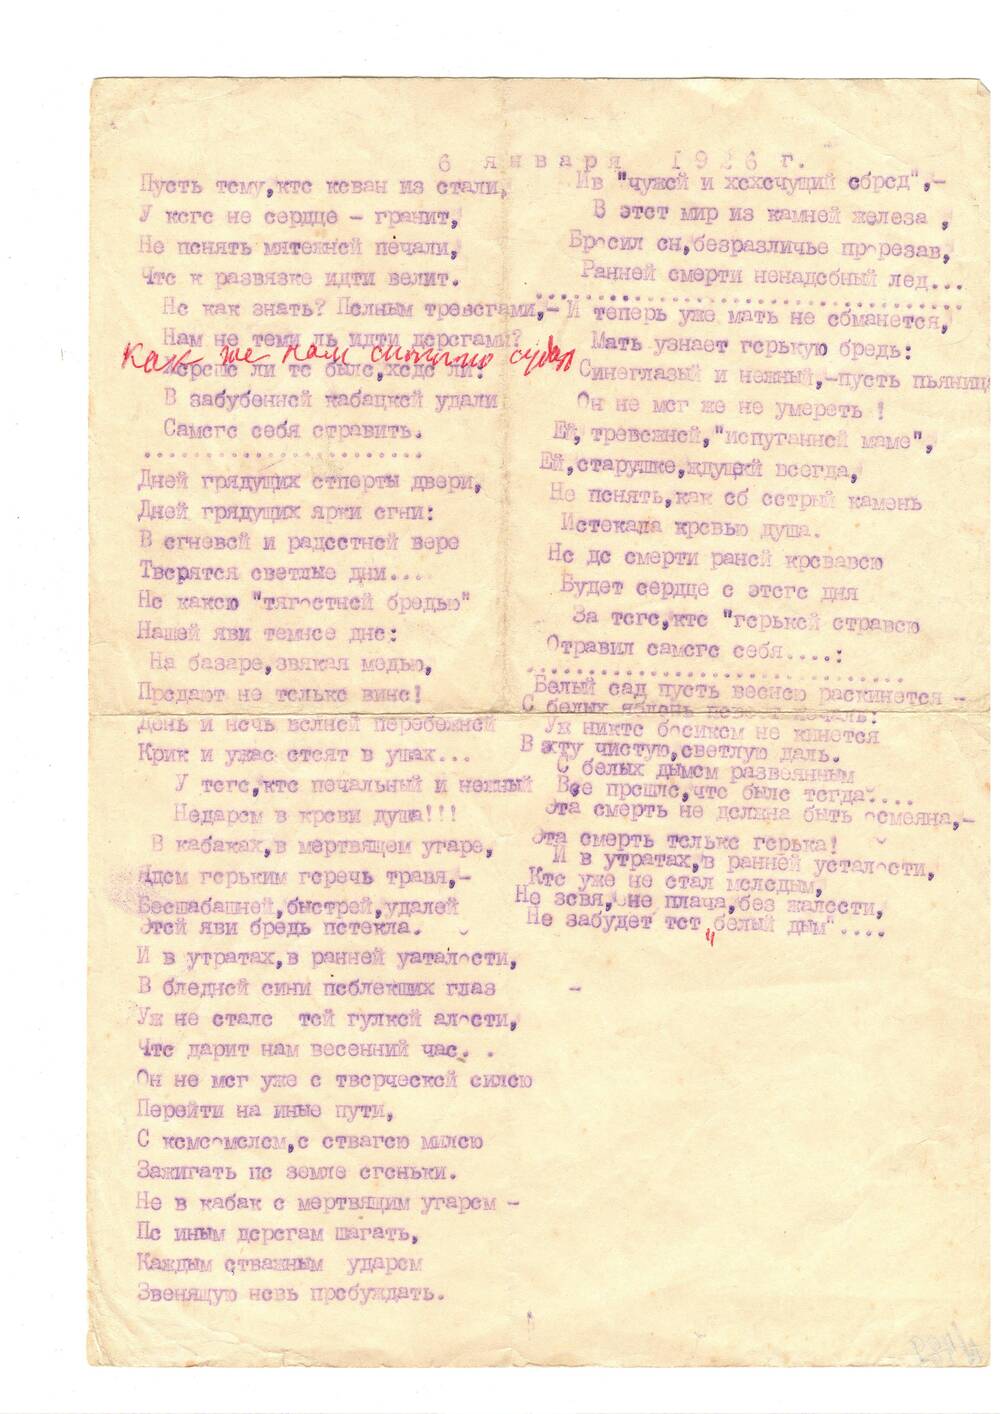 6 января 1926 г.
Пусть тому,кто кован из стали,
У кого не сердце – гранит,
Не понять мятежной печали,
Что к развязке идти велит.
Но как знать? Полным тревогами,–
Нам не теми ль идти дорогами?
Как же нам смотреть
Хорошо ли то было,худо ли?
В забубенной кабацкой удали
Самого себя отравить.
........................
Дней грядущих отперты двери,
Дней грядущих ярки огни:
В огневой и радостной вере
Творятся светлые дни....
Но какою "тягостной бредью"
Нашей яви темное дно:
На базаре,звякая медью,
Продают не только вино!
День и ночь волной перебежной
Крик и ужас стоят в ушах...
У того,кто печальный и нежный
Недаром в крови душа!!!
В кабаках,в мертвящем угаре,
Ядом горьким горечь травя,–
Бесшабашней,быстрей,удалей
Этой яви бредь потекла.
И в утратах,в ранней уаталости,
В бледной сини поблекших глаз
Уж не стало той гулкой алости,
Что дарит нам весенний час. .
Он не мог уже с творческой силою
Перейти на иные пути,
С комсомолом,с отвагою милою
Зажигать по земле огоньки.
Не в кабак с мертвящим угаром –
По иным дорогам шагать,
Каждым отважным ударом
Звенящую новь пробуждать.
Ив "чужой и хохочущий сброд",–
В этот мир из камней железа ,
Бросил он,безразличье прорезав,
Ранней смерти ненадобный лед...
........................
И теперь уже мать не обманется,
Мать узнает горькую бредь:
Синеглазый и нежный,–пусть пьяница
Он не мог же не умереть !
Ей, тревожной,"испуганной маме",
Ей,старушке,ждущей всегда,
Не понять,как об острый камень
Истекала кровью душа.
Но до смерти раной кровавою
Будет сердце с этого дня
За того,кто "горькой отравою
Отравил самого себя....:
........................
Белый сад пусть весною раскинется –
С белых яблонь повеет печаль:
Уж никто босиком не кинется
В эту чистую,светлую даль.
С белых дымом развеянным
Все прошло,что было тогда.....
Эта смерть не должна быть осмеяна,–
Эта смерть только горька!
И в утратах,в ранней усталости,
Кто уже не стал молодым,
Не зовя, не плача,без жалости,
Не забудет тот "белый дым"....